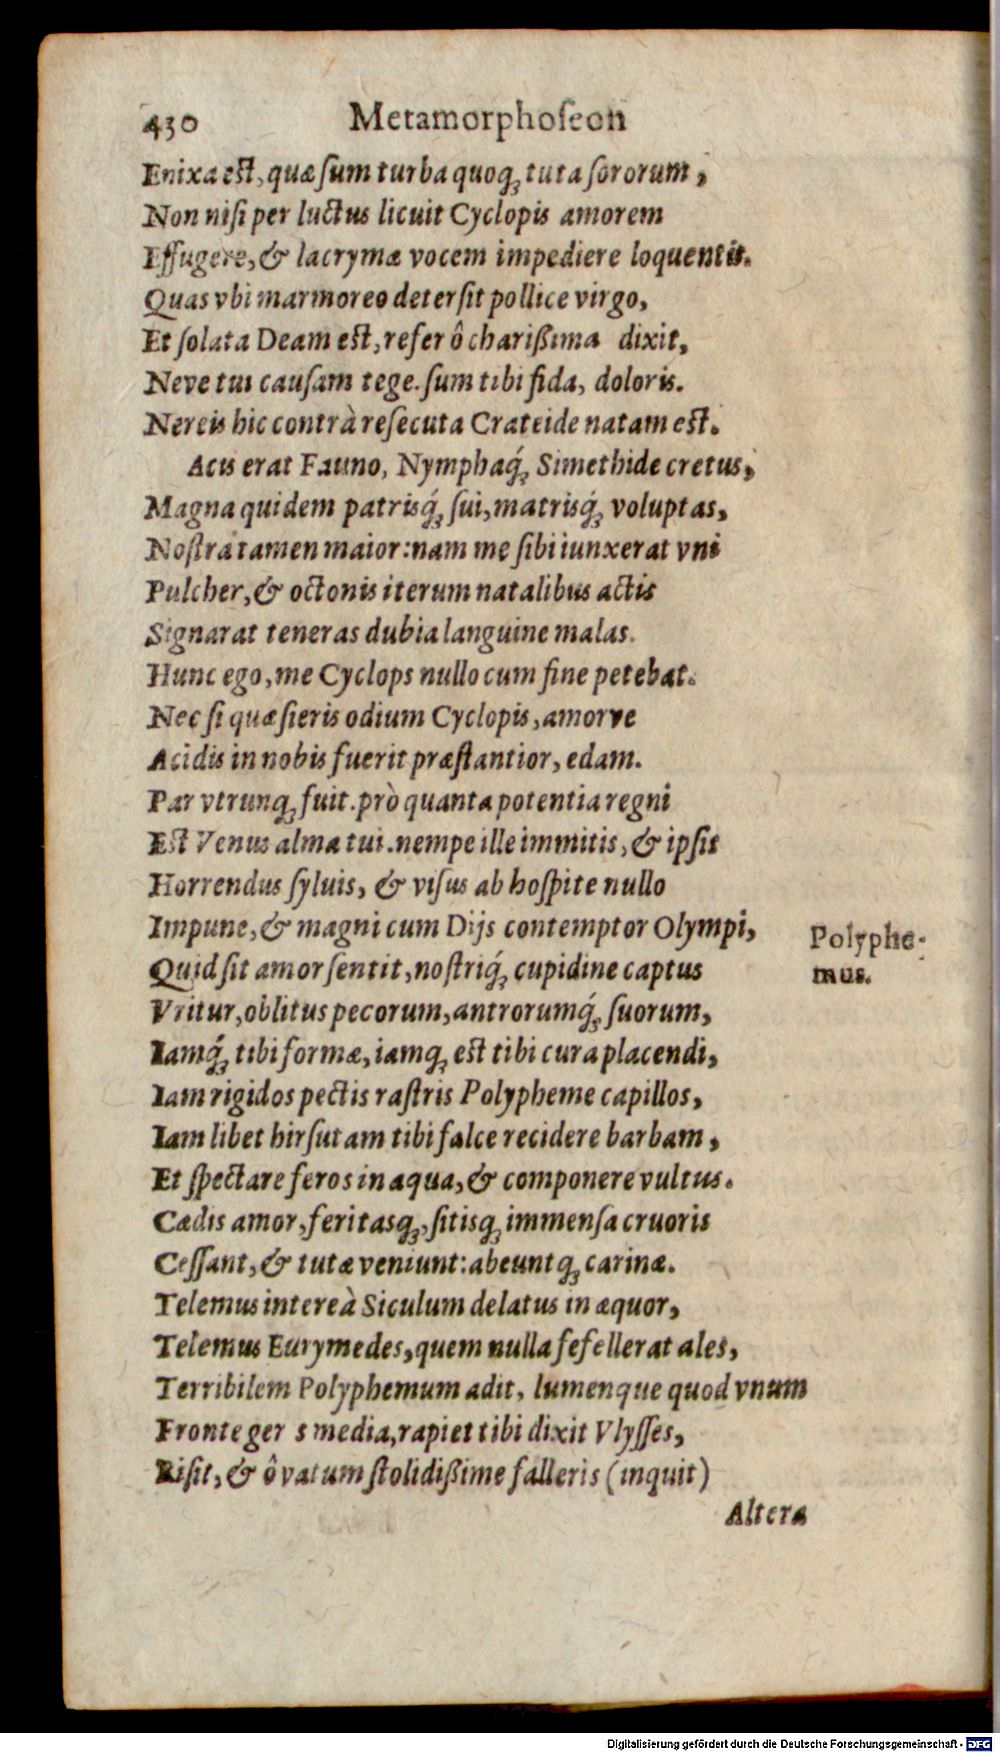 430 Metamorphoſeon
Enixa eſt, quæ ſum turba quoq; tuta ſororum,
Non niſi per luctus licuit Cyclopis amorem
Effugere, & lacrymæ vocem impediere loquentis.
Quas vbi marmoreo deterſit pollice virgo,
Et ſolata Deam eſt, refer ô chariſſima dixit,
Neve tui cauſam tege. ſum tibi fida, doloris.
Nereis hic contrà reſecuta Crateide natam eſt.
Acis erat Fauno, Nymphaq́; Simethide cretus,
Magna quidem patrisq́; ſui, matrisq́; voluptas,
Noſtra tamen maior: nam me ſibi iunxerat vni
Pulcher, & octonis iterum natalibus actis
Signarat teneras dubia languine malas.
Hunc ego, me Cyclops nullo cum fine petebat.
Nec ſi quæſieris odium Cyclopis, amorve
Acidis in nobis fuerit præſtantior, edam.
Par vtrunq; fuit. prò quanta potentia regni
Eſt Venus alma tui. nempe ille immitis, & ipſis
Horrendus ſyluis, & viſus ab hoſpite nullo
Impune, & magni cum Dijs contemptor Olympi,
Quid ſit amor ſentit, noſtriq́; cupidine captus
Vritur, oblitus pecorum, antrorumq́; ſuorum,
Iamq́; tibi formæ, iamq; eſt tibi cura placendi,
Iam rigidos pectis raſtris Polypheme capillos,
Iam libet hirſutam tibi falce recidere barbam,
Et ſpectare feros in aqua, & componere vultus.
Cædis amor, feritasq;, ſitisq; immenſa cruoris
Ceſſant, & tutæ veniunt: abeuntq; carinæ.
Telemus intereà Siculum delatus in æquor,
Telemus Eurymedes, quem nulla fefellerat ales,
Terribilem Polyphemum adit, lumenque quod vnum
Fronte ger s media, rapiet tibi dixit Vlyſſes,
Riſit, & ô vatum ſtolidiſſime falleris (inquit)
Altera
Polyphe-
mus.
Digitalisierung gefördert durch die Deutsche Forschungsgemeinschaft - DFG